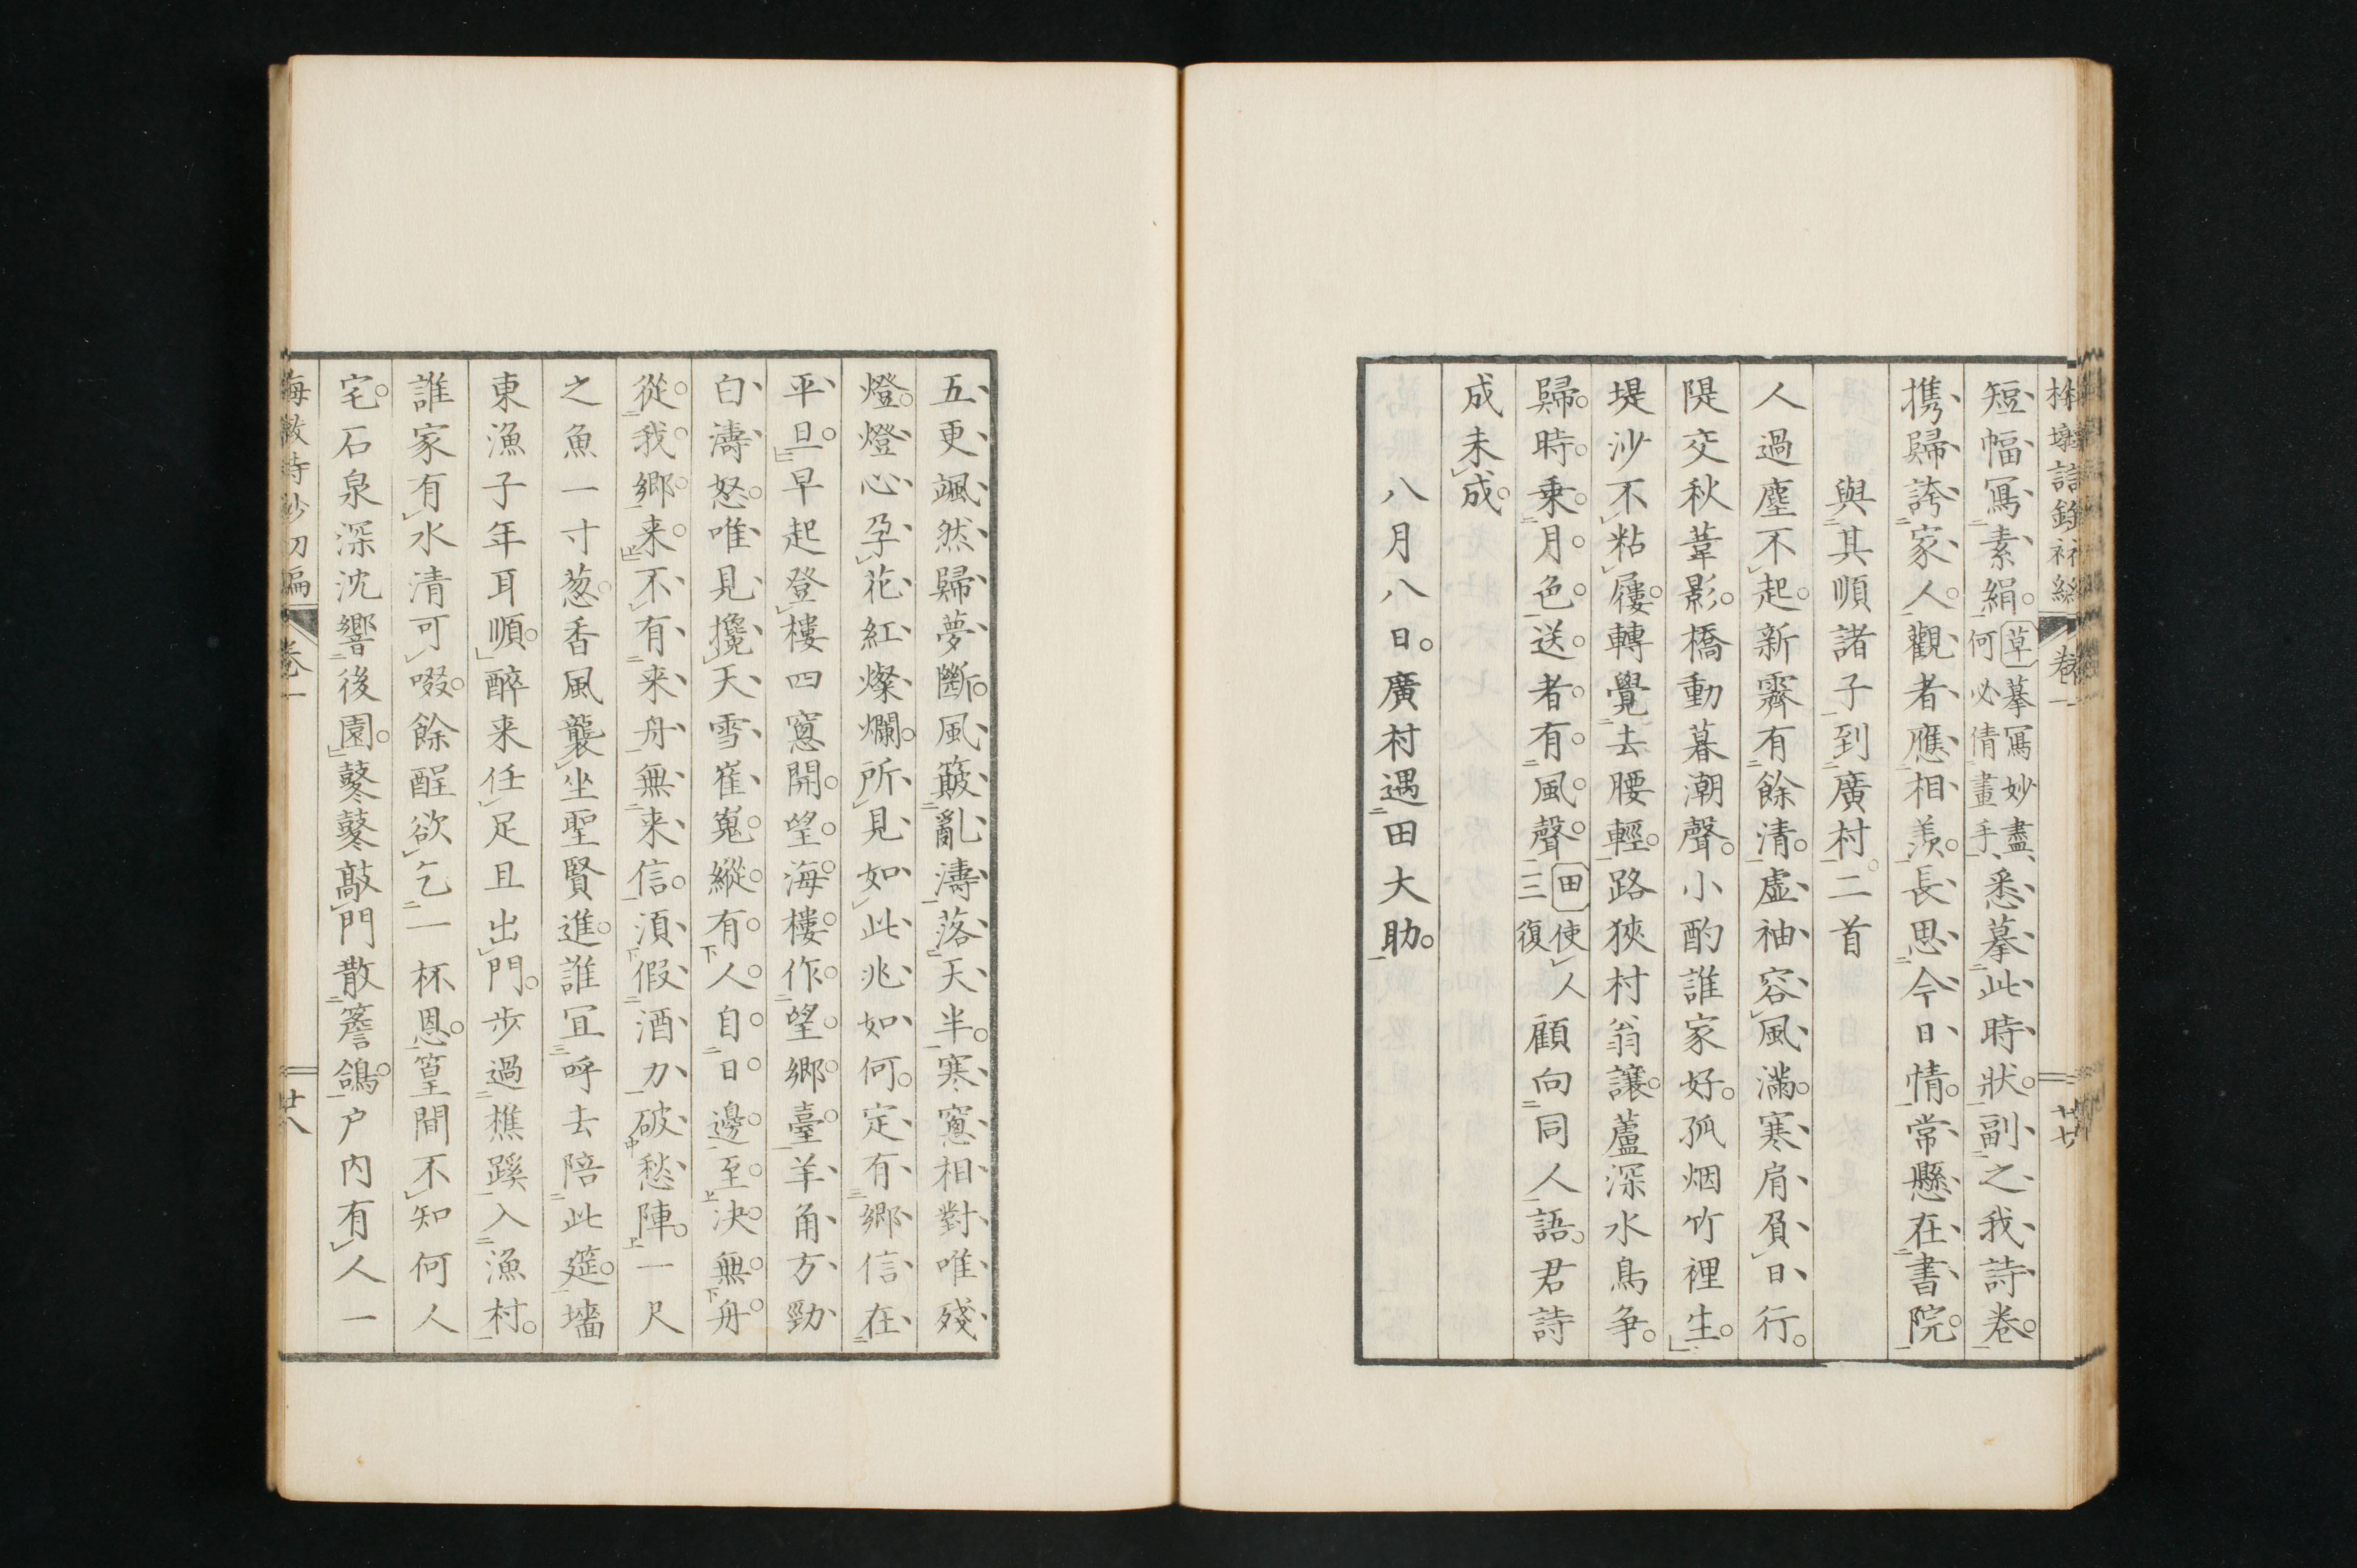 短幅寫素絹草摹寫妙盡
何必倩畫手悉摹此時狀副之我詩卷
携歸誇家人觀者應相羨長思今日情常懸在書院
與其順諸子到廣村二首
人過塵不起新霽有餘清虛袖容風滿寒肩負日行
隄交秋葦影橋動暮潮聲小酌誰家好孤烟竹裡生
堤沙不粘屨轉覺去腰輕路狹村翁讓蘆深水鳥争
歸時乗月色送者有風聲田使人
三復顧向同人語君詩
成未成
八月八日廣村遇田大助
卷一
廿七
五更颯然歸夢斷風簸亂濤落天半寒窻相對唯殘
燈燈心孕花紅燦爛所見如此兆如何定有鄉信在
平旦早起登樓四窻開望海樓作望鄉臺羊角方勁
白濤怒唯見攙天雪崔嵬縱有人自日邊至決無舟
從我鄉来不有来舟無来信湏假酒力破愁陣一尺
之魚一寸葱香風襲坐聖賢進誰冝呼去陪此筵墻
東漁子年耳順醉来任足且出門歩過樵蹊入漁村
誰家有水清可啜餘酲欲乞一杯恩篁間不知何人
宅石泉深沈響後園鼕鼕敲門散簷鴿户内有人一
海叟詩鈔初編
卷一
廿八